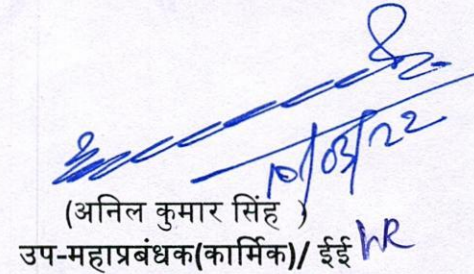 10/03/22
(अनिल कुमार सिंह )
उप-महाप्रबंधक(कार्मिक)/ ईई HR